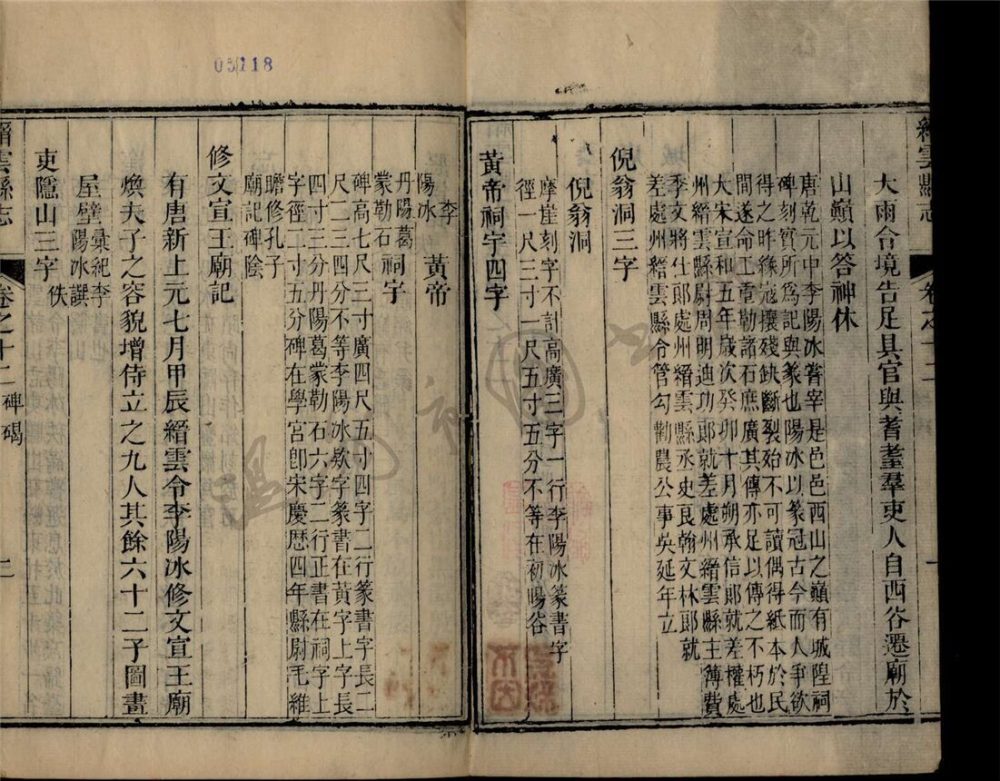 大雨合境告足具官與耆耋羣吏人自西谷遷廟於
山巔以答神休
唐乾元中李陽冰嘗宰是邑邑西山之巔有城隍祠
碑刻實所為記與篆也陽冰以篆冠古今而人爭欲
得之昨緣寇攘殘缺斷裂殆不可讀偶得紙本於民
間遂命工重勒諸石庶廣其傳亦足以傳之不朽也
大宋宣和五年歲次癸卯十月朔承信郎就差權處
州縉雲縣尉周明迪功郎就差處州縉雲縣主簿費
季文將仕郎處州縉雲縣丞史良翰文林郎就
差處州縉雲縣令管勾勸農公事吳延年立
倪翁洞三字
倪翁洞
摩崖刻字不計高廣三字一行李陽冰篆書字
徑一尺三寸一尺五寸五分不等在初暘谷
黃帝祠宇四字
李
陽冰 黃帝
丹陽葛 祠宇
蒙勒石
碑高七尺三寸廣四尺五寸四字二行篆書字長二
尺二三四分不等李陽冰欵字篆書在黃字上字長
四寸三分丹陽葛蒙勒石六字二行正書在祠字上
字徑二寸五分碑在學宮卽宋慶歷四年縣尉毛維
瞻修孔子
廟記碑陰
修文宣王廟記
有唐新上元七月甲辰縉雲令李陽冰修文宣王廟
煥夫子之容貌增侍立之九人其餘六十二子圖畫
屋壁彙紀李
陽冰譔 佚
吏隱山三字
縉雲縣志
卷之十二
碑碣
二
05118